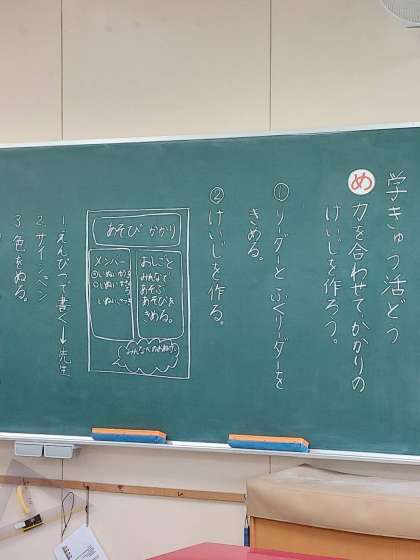 学きゅう活どう
め 力を合わせて、かかりの
けいじを作ろう。
① リーダーと ふくリーダーを
きめる。
② けいじを作る。
あそび かかり
おしごと
みんなで
あそぶ
あそびを
きめる。
メンバー
1 えんぴつで書く→先生
2 サインペン
3 色をぬる。